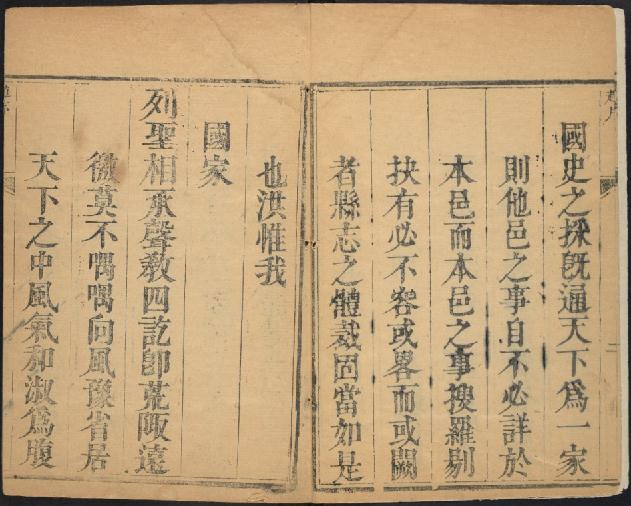 國史之採旣逼天下爲一家
則他邑之事自不必詳於
本邑而本邑之事搜羅剔
抉有必不容或畧而或闕
者縣志之體裁固當如是
也洪惟我
國家
列聖相承聲敎四訖卽荒陬遠
徼莫不喁喁向風豫省居
天下之中風氣和淑爲腹